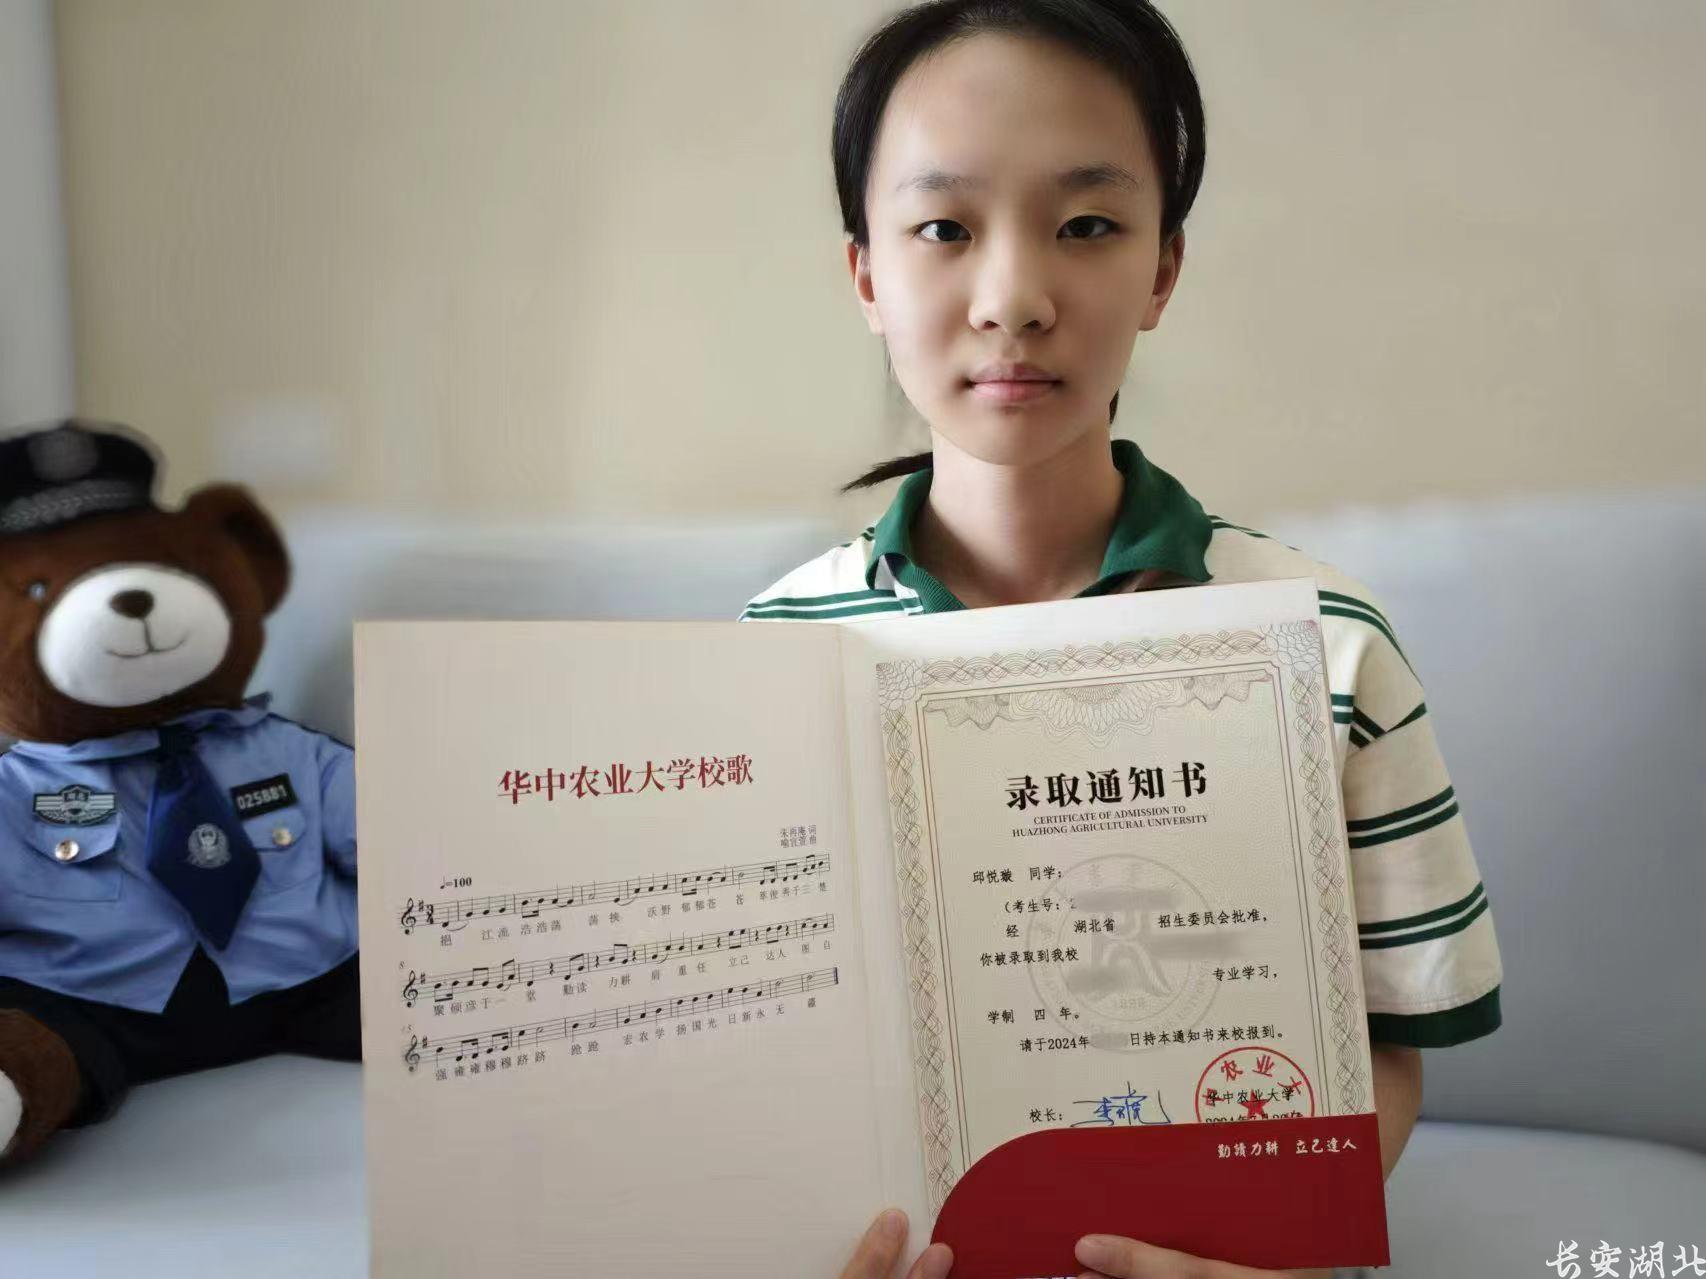 025881
华中农业大学校歌
朱再庵 词
喻宜萱 曲
♩=100
挹 江流 浩浩荡 荡 挟 沃野 郁郁苍 苍 萃俊秀于三 楚
8
聚硕彦于一 堂 勤读 力耕 肩 重任 立己 达人 图 自
15
强 雍雍穆穆跻跻 跄跄 宏农学 扬国光 日新永无 疆
录取通知书
CERTIFICATE OF ADMISSION TO
HUAZHONG AGRICULTURAL UNIVERSITY
邱悦璇 同学:
(考生号:2
经 湖北省 招生委员会批准,
你被录取到我校
专业学习,
学制 四 年。
请于2024年 日持本通知书来校报到。
1898
校长:
农业大
华中农业大学
勤读力耕 立己達人
长安湖北